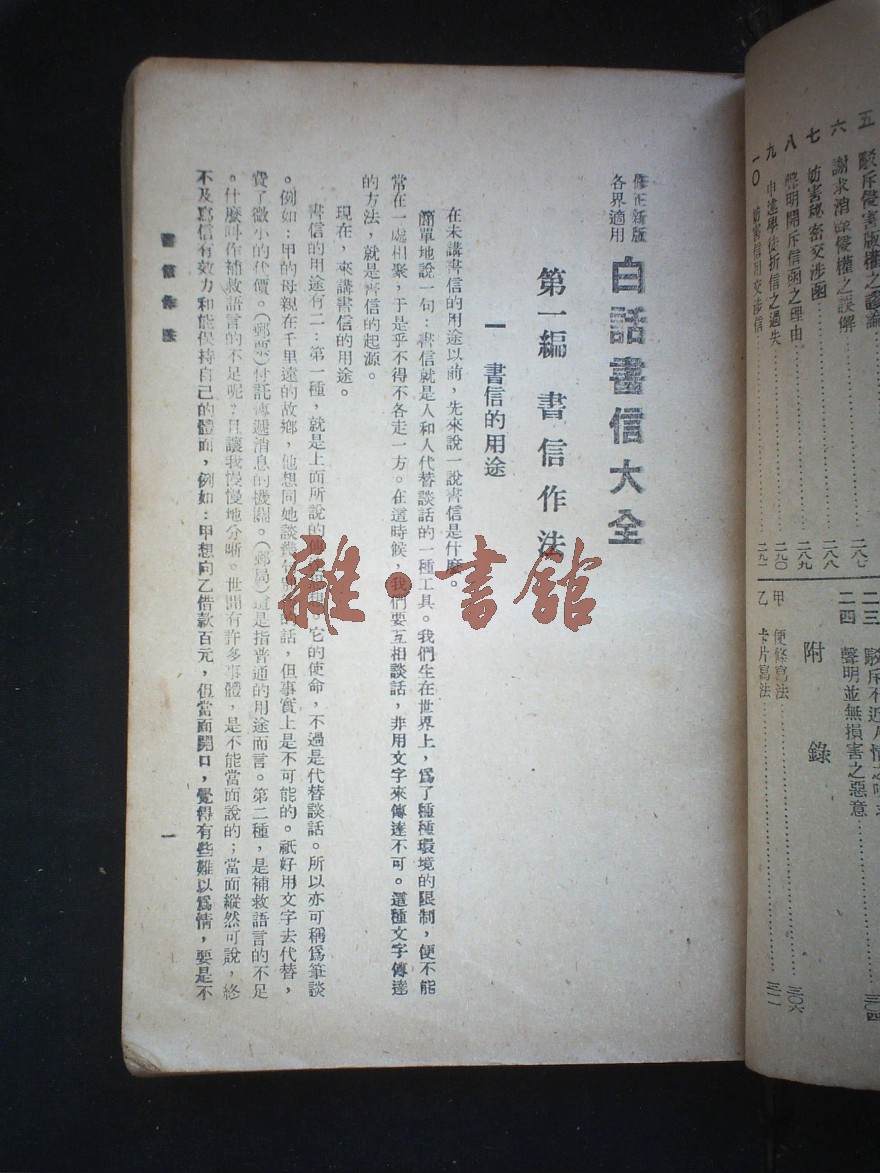 五 駁斥侵害版權之謬論……二八七
六 謝求消除侵權之誤解……二八八
七 妨害秘密交涉函……二八九
八 聲明開斥信函之理由……二九〇
九 申述學徒折信之過失……二九一
一〇 妨害信用交涉信
二三 駁斥不近人情之
二四 聲明並無損害之惡意……三〇四
附錄
甲 便條寫法……三〇六
乙 卡片寫法……三一一
修正新版
各界適用
白話書信大全
第一編 書信作法
一 書信的用途
在未講書信的用途以前,先來說一說書信是什麼。
簡單地說一句:書信就是人和人代替談話的一種工具。我們生在世界上,爲了種種環境的限制,便不能
常在一處相聚,于是乎不得不各走一方。在這時候,我們要互相談話,非用文字來傳達不可。這種文字傳達
的方法,就是書信的起源。
現在,來講書信的用途。
書信的用途有二:第一種,就是上面所說的。它的使命,不過是代替談話。所以亦可稱爲筆談
。例如:甲的母親在千里遠的故鄉,他想同她談的話,但事實上是不可能的。祇好用文字去代替,
費了微小的代價。(郵票)付託傳遞消息的機關。(郵局)這是指普通的用途而言。第二種,是補救語言的不足
。什麼叫作補救語言的不足呢?且讓我慢慢地分晰。世間有許多事體,是不能當面說的;當面縱然可說,終
不及寫信有效力和能保持自己的體面,例如:甲想向乙借款百元,但當面開口,覺得有些難以爲情,要是不
書信作法
一
雜·書館